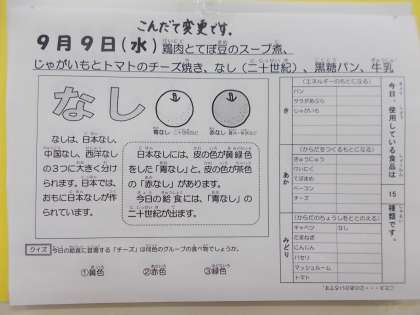 こんだて変更です。
9月9日(水) 鶏肉とてぼ豆のスープ煮、
じゃがいもとトマトのチーズ焼き、なし(二十世紀)、黒糖パン、牛乳
なし
青なし
赤なし
なしは、日本なし、
中国なし、西洋なし
の3つに大きく分け
られます。日本では、
おもに日本なしが作
られています。
日本なしには、皮の色が黄緑色
をした「青なし」と、皮の色が茶色
の「赤なし」があります。
今日の給食には、「青なし」の
二十世紀が出ます。
クイズ 今日の給食に登場する「チーズ」は何色のグループの食べ物でしょうか。
①黄色 ②赤色 ③緑色
今日、使用している食品は 15 種類です。
き
(エネルギーのもとになる)
パン
サラダあぶら
じゃがいも
あか
(からだをつくるもとになる)
ぎゅうにゅう
けいにく
てぼまめ
ベーコン
チーズ
みどり
(からだのちょうしをととのえる)
キャベツ なし
たまねぎ
にんじん
パセリ
マッシュルーム
トマト